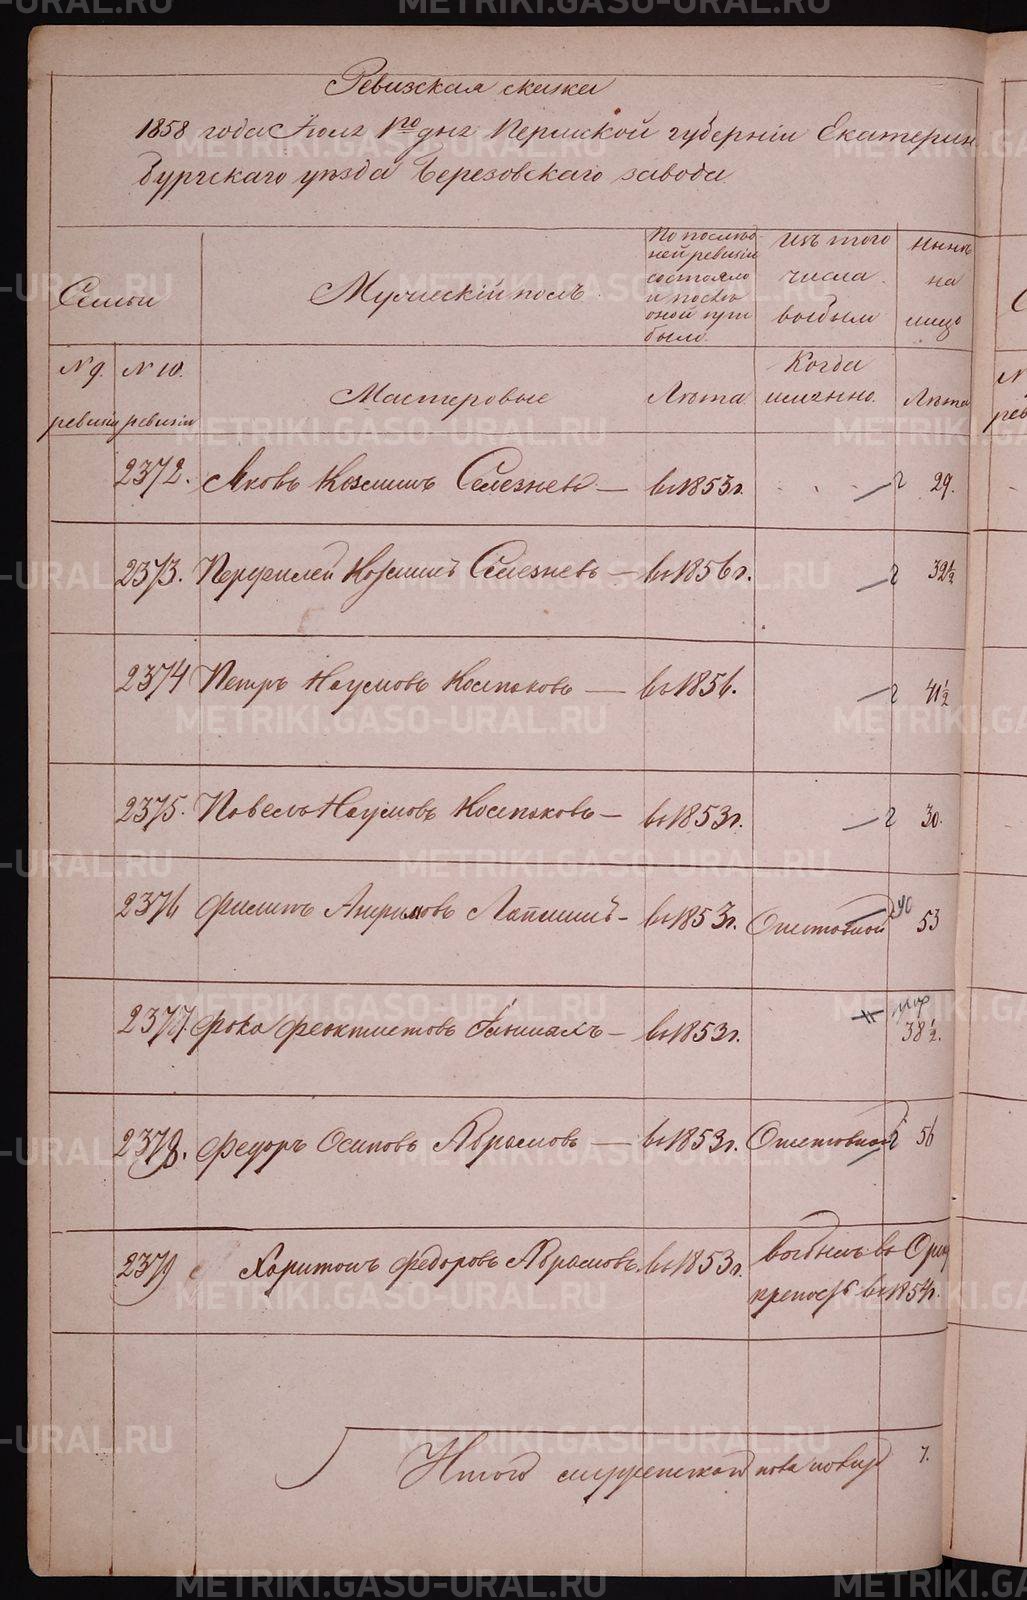 Ревизская сказка
1858 года Июля 1го дня Пермской губернiи Екатерин
бургскаго уѣзда Березовскаго завода
Семьи
Мужескiй полъ
По послѣд
ней ревизiи
состояло
и послѣ
оной при
было.
Изъ того
числа
выбыли
Нынѣ
на
лицо
N 9.
ревизiи
N 10.
ревизiи
Мастеровые
Лѣта
Когда
именно.
Лѣта
2372. Яковъ Козминъ Селезневъ — въ 1853 г. 29.
2373. Перфилей Козминъ Селезневъ — въ 1856 г. 32 1/2
2374 Петръ Наумовъ Колпаковъ — въ 1856. 41 1/2
2375. Павелъ Наумовъ Колпаковъ — въ 1853 г. 30.
2376 Филипъ Лапшинъ — въ 1853 г. Отставной 53
2377. Фока Феоктистовъ — въ 1853 г. 38 1/2.
2378. Федоръ Осиповъ Абрамовъ — въ 1853 г. Отставной 56
2379 Харитонъ Федоровъ Абрамовъ въ 1853 г. выбылъ въ
въ 1854 г.
Итого мужескаго пола 7.
METRIKI.GASO-URAL.RU